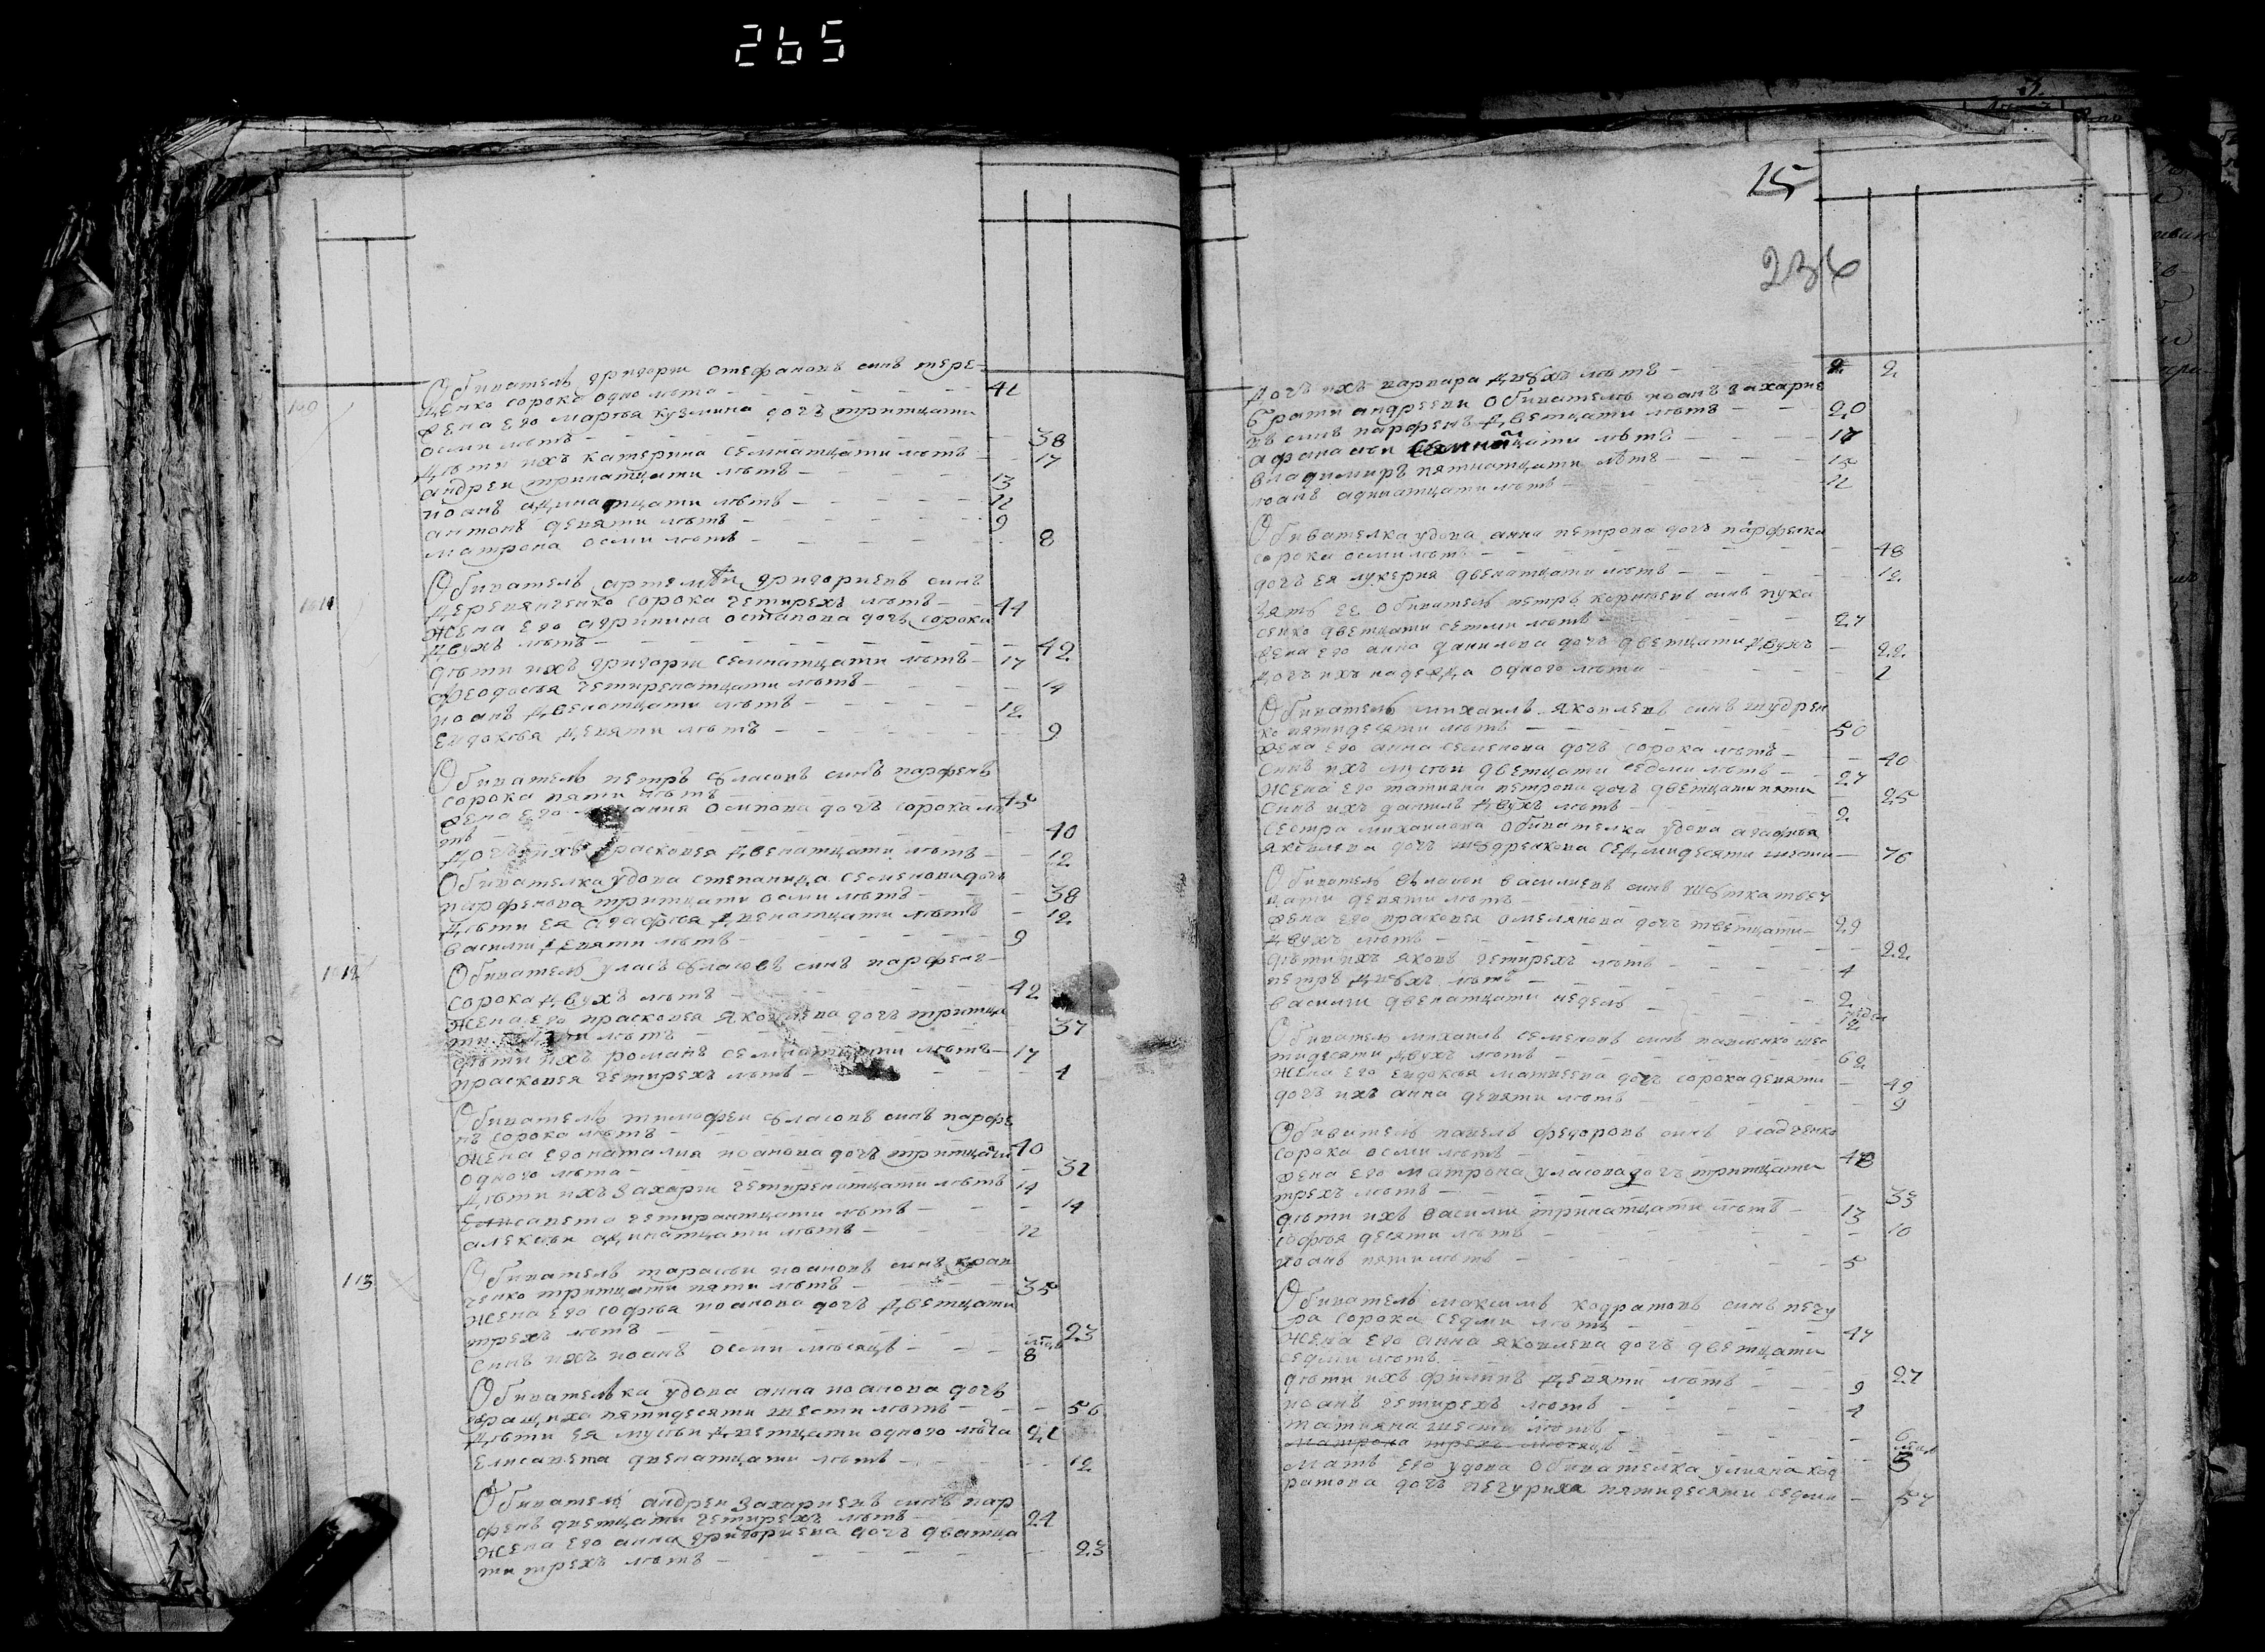 265
Обиватель григорги стефановъ синъ тере-
щенко сорока одно лѣта - 41
109
Жена его марѳа кузмина дочъ тритцати
осми лѣтъ - 38
Дѣти ихъ катерина семнатцати лѣтъ - 17
андреи тринатцати лѣтъ - 13
иоанъ адинатцати лѣтъ - 11
антонъ девяти лѣтъ - 9
матрона осми лѣтъ - 8
Обиватель артемѣи григориевъ синъ
деревянченко сорока четирехъ лѣтъ - 44
Жена его агрипина остапова дочъ сорока
двухъ лѣтъ - 42
дѣти ихъ григорги семнатцати лѣтъ - 17
феодосья четиренатцати лѣтъ - 14
иоанъ двенатцати лѣтъ - 12
Евдокѣя девяти лѣтъ - 9
Обиватель петръ власовъ синъ парфенъ
сорока пяти лѣтъ - 45
Жена его осипова дочъ сорока лѣ
тъ - 40
Дочъ ихъ прасковея двенатцати лѣтъ - 12
Обивателка удова степанида семенова дочъ
парфенова тритцати осми лѣтъ - 38
Дѣти ея агафѣя двенатцати лѣтъ - 12
василги девяти лѣтъ - 9
112
Обиватель уласъ власовъ синъ парфенъ-
сорока двухъ лѣтъ - 42
Жена его прасковея яковлева дочъ тритца
ти лѣтъ - 37
дѣти ихъ романъ семнатцати лѣтъ - 17
прасковея четирехъ лѣтъ - 4
Обиватель тимофеи власовъ синъ парфе
нъ сорока лѣтъ -
Жена его наталия иоанова дочъ тритцати 40
одного лѣта - 31
Дѣти ихъ захарги четиренатцати лѣтъ 14
Елисавета четиранатцати лѣтъ - 14
алексѣи адинатцати лѣтъ - 11
113
Обиватель тарасѣи иоановъ синъ крав
ченко тритцати пяти лѣтъ - 35
Жена его софѣя иоанова дочъ дветцати
трехъ лѣтъ - 23
Синъ ихъ иоанъ осми мѣсяцѣ - 8
Обивателька удова анна иоанова дочъ
пятидесяти шести лѣтъ - 56
Дѣти ея мусѣи дветцати одного лѣта 21
Елисавета двенатцати лѣтъ - 12
Обиватель андреи захариевъ синъ пар
фенъ дветцати четирехъ лѣтъ - 24
Жена его анна григориева дочъ дватца
ти трехъ лѣтъ - 23
15
236
Дочъ ихъ варвара двѣхъ лѣтъ - 2
Брати андрееви обиватель иоанъ захарие
въ синъ парфенъ дветцати лѣтъ - 20
афанасѣи семнатцати лѣтъ - 17
владимиръ пятнатцати лѣтъ - 15
иоанъ адинатцати лѣтъ - 11
Обивателка удова анна петрова дочъ парфенка
сорока осми лѣтъ - 48
дочъ ея лукерия двенатцати лѣтъ - 12
Зять ее обиватель петръ корнѣевъ синъ лука
сенко дветцати седми лѣтъ - 27
Жена его анна данилова дочъ дветцати двухъ - 22
Дочъ ихъ надежда одного лѣта - 1
Обиватель михаилъ яковлевъ синъ шудрен
ко пятидесяти лѣтъ - 50
Жена его анна семенова дочъ сорока лѣтъ - 40
Синъ ихъ мусѣи дветцати седми лѣтъ - 27
Жена его татияна петрова дочъ дветцати пяти 25
Синъ ихъ данилъ двухъ лѣтъ - 2
Сестра михаилова обивателка удова агафѣя
яковлева дочъ шудренкова седмидесяти шести - 76
Обиватель власѣи василиевъ синъ твет
цати девяти лѣтъ -
Жена его прасковея омелянова дочъ тветцати- 29
двухъ лѣтъ - 22
дѣти ихъ яковъ четирехъ лѣтъ - 4
петръ двѣхъ лѣтъ - 2
василги двенатцати недель - недел 12
Обиватель михаилъ семеновъ синъ павленко шес
тидесяти двухъ лѣтъ - 62
Жена его Евдокѣя матвеева дочъ сорока девяти - 49
дочъ ихъ анна девяти лѣтъ - 9
Обиватель павелъ федоровъ синъ гладченко
сорока осми лѣтъ - 48
Жена его матрона уласова дочъ тритцати
трехъ лѣтъ - 33
дѣти ихъ василги тринатцати лѣтъ - 13
софѣя десяти лѣтъ - 10
иоанъ пяти лѣтъ - 5
Обиватель максимъ кодратовъ синъ печу
ра сорока седми лѣтъ - 47
Жена его анна яковлева дочъ дветцати
седми лѣтъ - 27
дѣти ихъ филипъ девяти лѣтъ - 9
иоанъ четирехъ лѣтъ - 4
татияна шести лѣтъ - 6
матрона трехъ мѣсяцѣ - 3
Мать его удова обивателка улияна код
ратова дочъ печуриха пятидесяти седми - 57